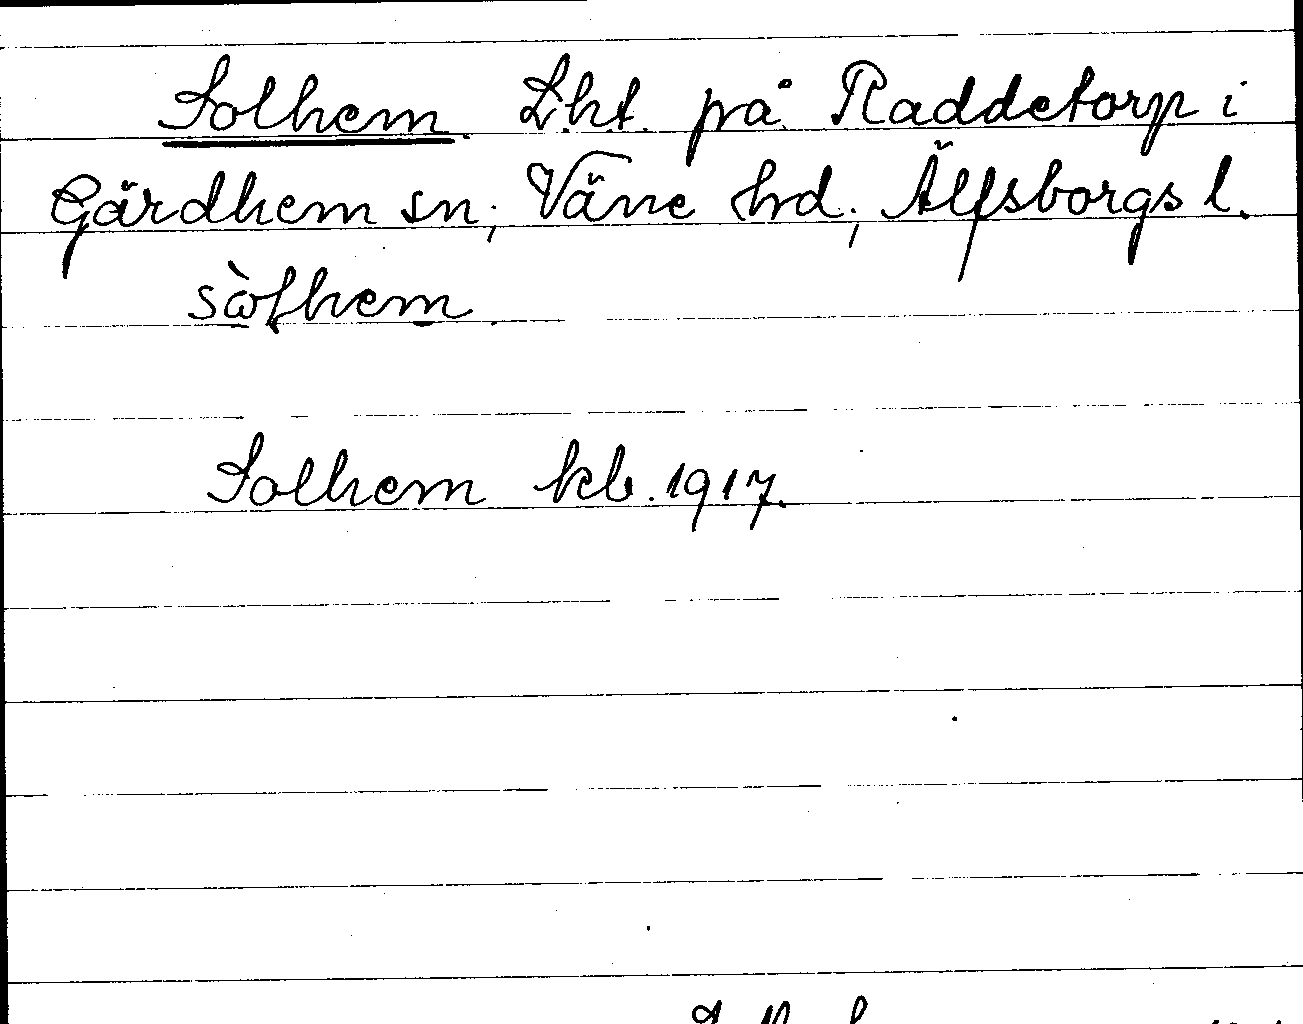 Solhem. Lht. på Raddetorp i
Gärdhem sn, Väne hd, Älfsborgs l.
Solhem kb. 1917.